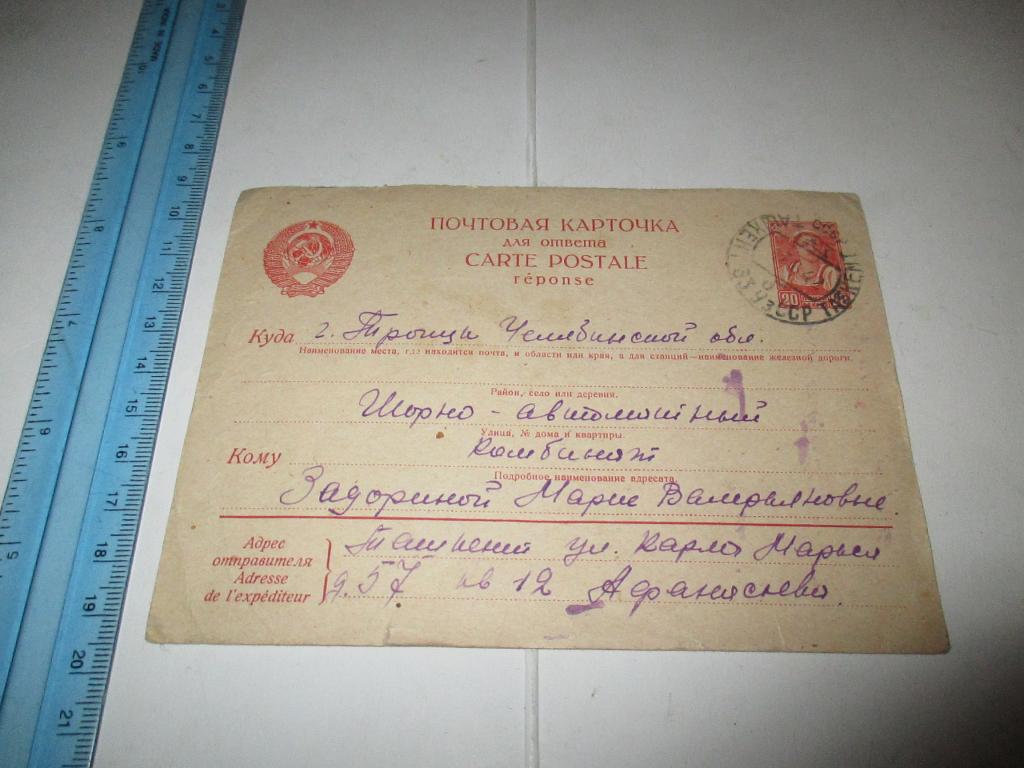 ПОЧТОВАЯ КАРТОЧКА
для ответа
CARTE POSTALE
réponse
20
Куда г. Троицк Челябинской обл.
Наименование места, где находится почта, и области или края, а для станций—наименование железной дороги.
Район, село или деревня.
Шорно - автомотный
Улица, № дома и квартиры.
Кому комбинат
Подробное наименование адресата.
Задориной Марие Валерьяновне.
Адрес отправителя
Adresse de l'expéditeur
Ташкент ул. Карла Маркса
д. 57 кв 12 Афанасьева.
MADE IN
2 3 4 5 6 7 8 9 10 11 12 13 14 15 16 17 18 19 20 21